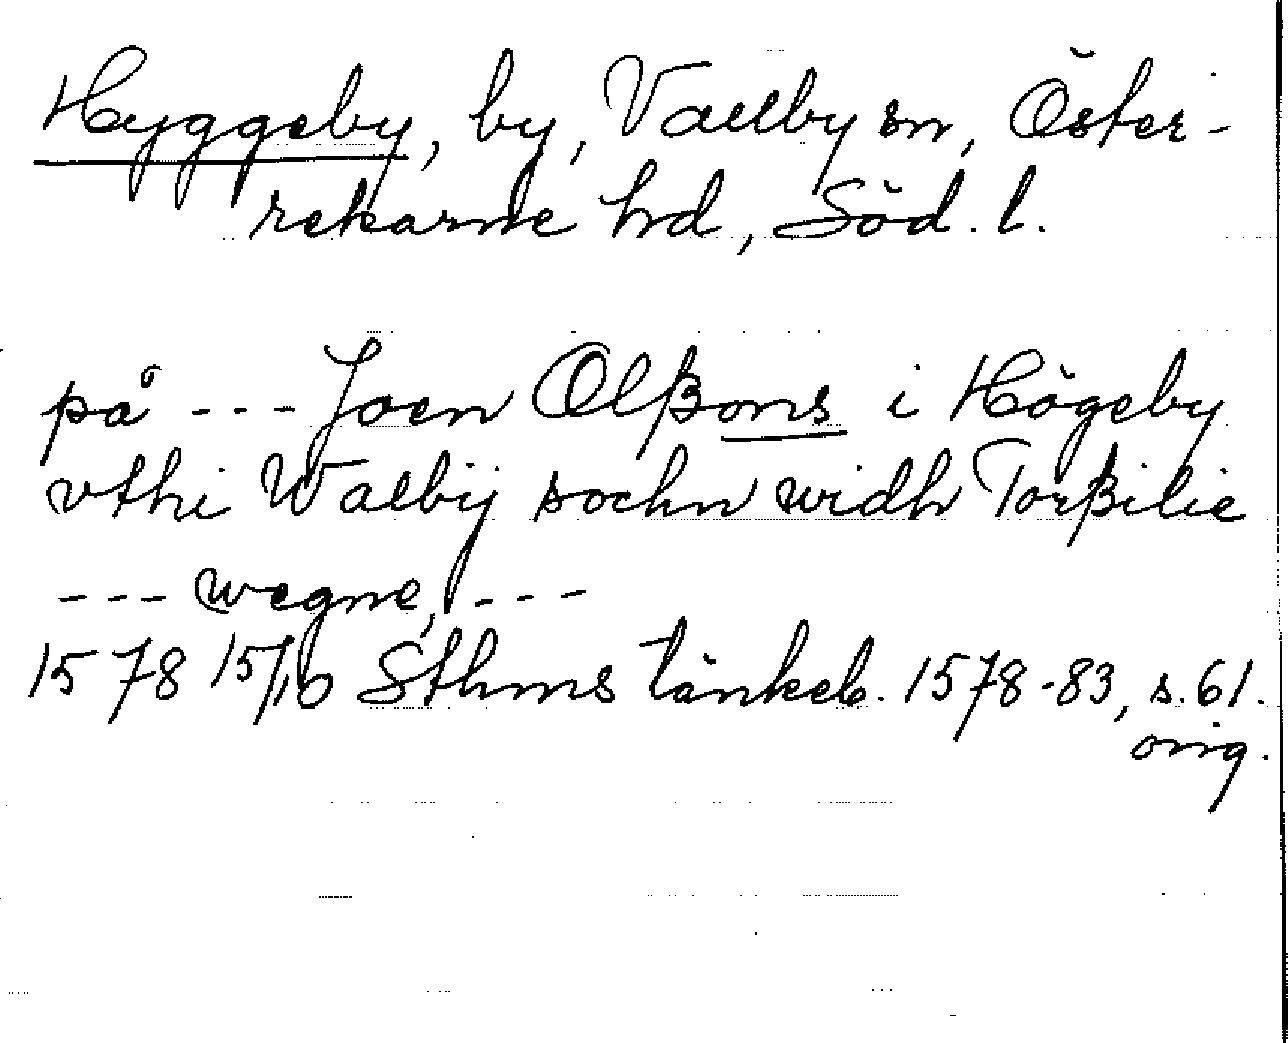 Hyggeby, by, Vallby sn, Öster-
rekarne hd, Söd. l.
på --- Joen Olßons i Högeby
vthi Walbÿ sochn widh Torßilie
--- wegne, ---
1578 15/10 Sthms tänkeb. 1578-83, s. 61.
orig.